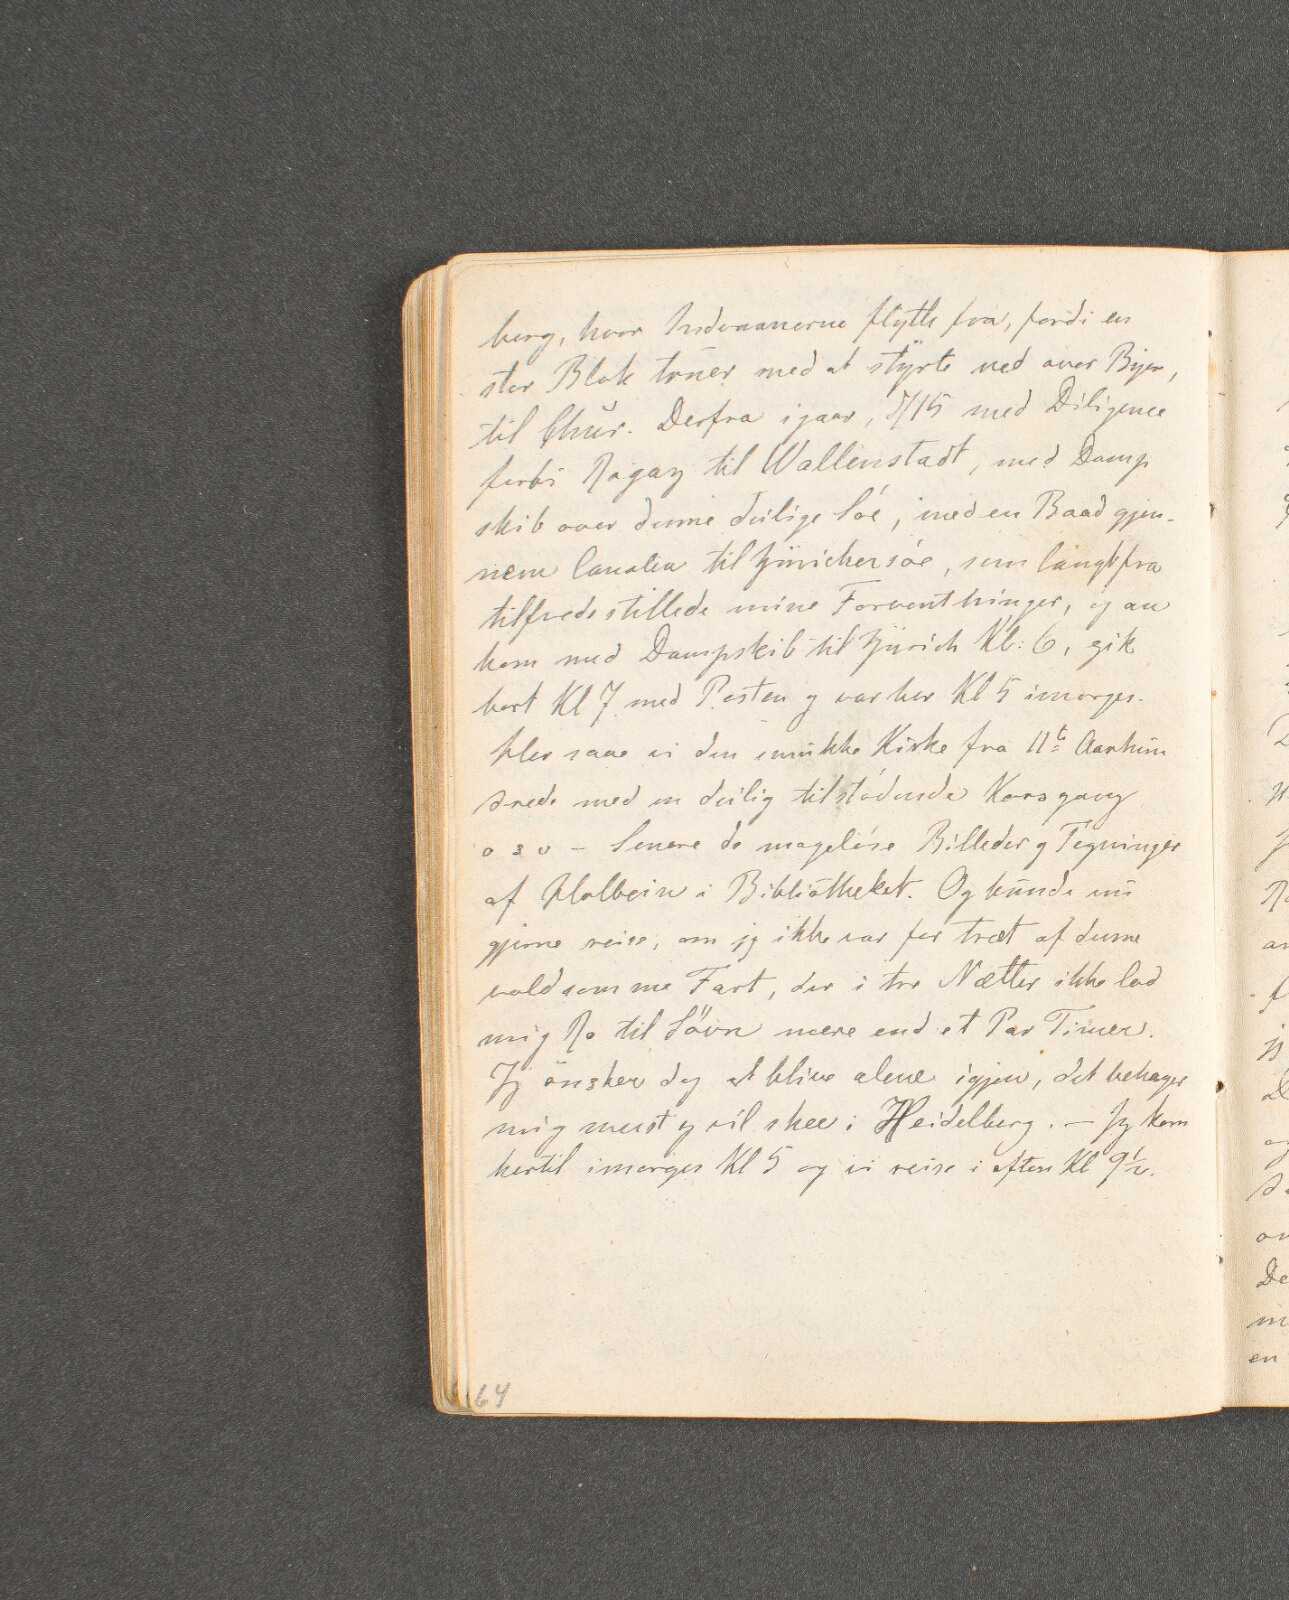 berg, hvor Indvaanerne flytte fra, fordi en
stor Blok truer med at styrte ned over Byen,
til Chur. Derfra igaar, med Diligence
forbi Ragaz til Wallenstadt, med Damp
skib over denne deilige Söe, med en Baad gjen-
nem Canalen til Zürichersöe, som langtfra
tilfredsstillede mine Forventninger, og an
kom med Dampskib til Zürich Kl: 6, gik
bort Kl 7 med Posten og var her Kl 5 imorges.
Her saae vi den smukke Kirke fra 11te Aarhun
drede med en deilig tilstödende Korsgang
o s v - Senere de magelöse Billeder og Tegninger
af Holbein i Bibliotheket. Og kunde nu
gjerne reise, om jeg ikke var for træt af denne
voldsomme Fart, der i tre Nætter ikke lod
mig Ro til Sövn mere end et Par Timer.
Jeg önsker dog at blive alene igjen, det behager
mig meest og vil skee i Heidelberg. — Jeg kom
hertil imorges Kl 5 og vi reise i aften Kl 9½.
64